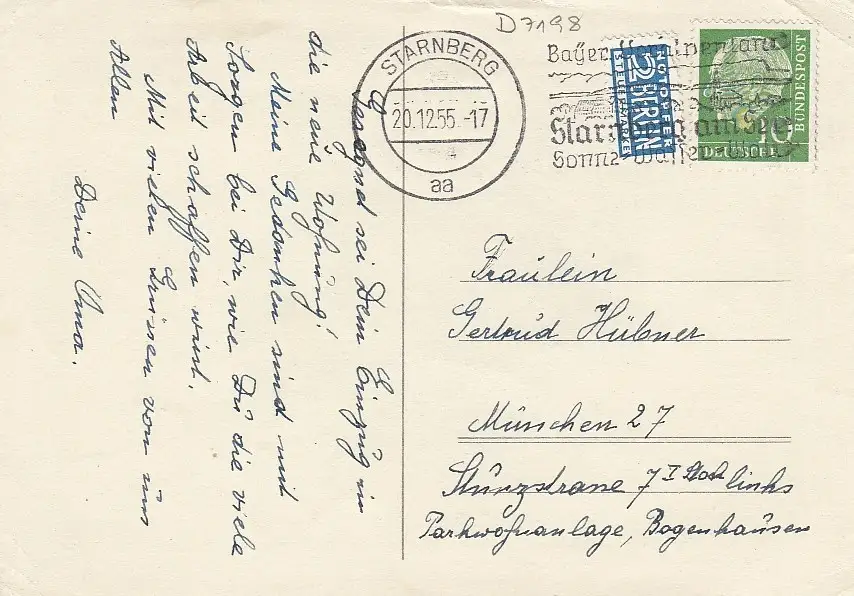 D7198
STARNBERG
20.12.55.-17
aa
Starnberg am See
NOTOPFER
2 BERLIN
STEUERMARKE
DEUTSCHE
BUNDESPOST
10
Gesegnet sei Dein Einzug in
die neue Wohnung!
Meine Gedanken sind mit
Sorgen bei Dir, wie Du die viele
Arbeit schaffen wirst.
Mit vielen Grüssen von uns
Allen
Deine Oma.
Fräulein
Gertrud Hübner
München 27
7 I Stock links
Parkwohnanlage, Bogenhausen